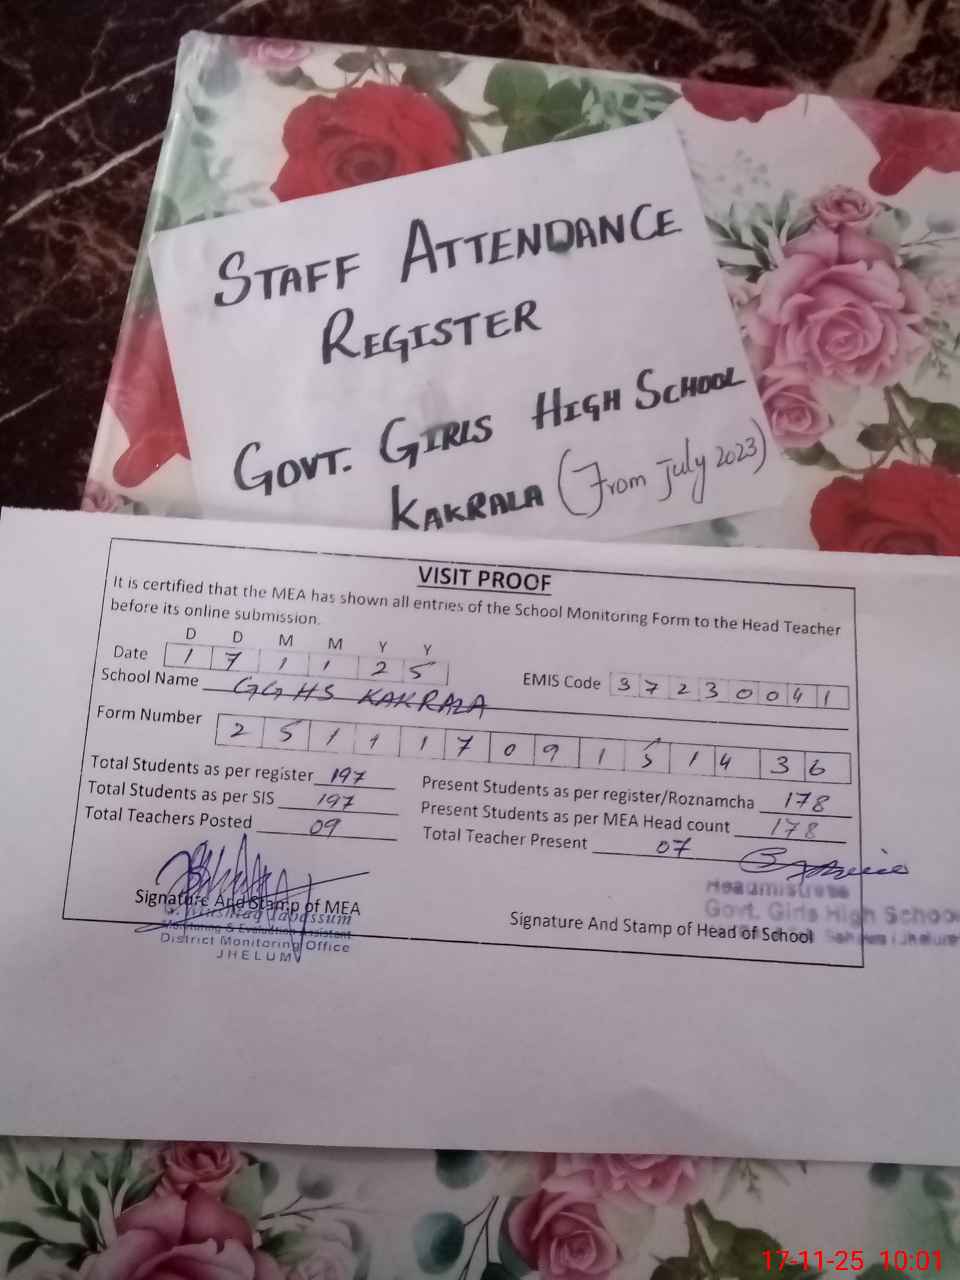 STAFF ATTENDANCE
REGISTER
GOVT. GIRLS HIGH SCHOOL
KAKRALA (From July 2023)
VISIT PROOF
It is certified that the MEA has shown all entries of the School Monitoring Form to the Head Teacher
before its online submission.
D D M M Y Y
Date 1 7 1 1 2 5
EMIS Code 3 7 2 3 0 0 4 1
School Name GGHS KAKRALA
Form Number 2 5 1 1 1 7 0 9 1 5 1 4 3 6
Total Students as per register 197
Present Students as per register/Roznamcha 178
Total Students as per SIS 197
Present Students as per MEA Head count 178
Total Teachers Posted 09
Total Teacher Present 07
Signature And Stamp of MEA
Tabassum
Monitoring & Evaluation Assistant
District Monitoring Office
JHELUM
Headmistress
Govt. Girls High School
Signature And Stamp of Head of School
17-11-25 10:01